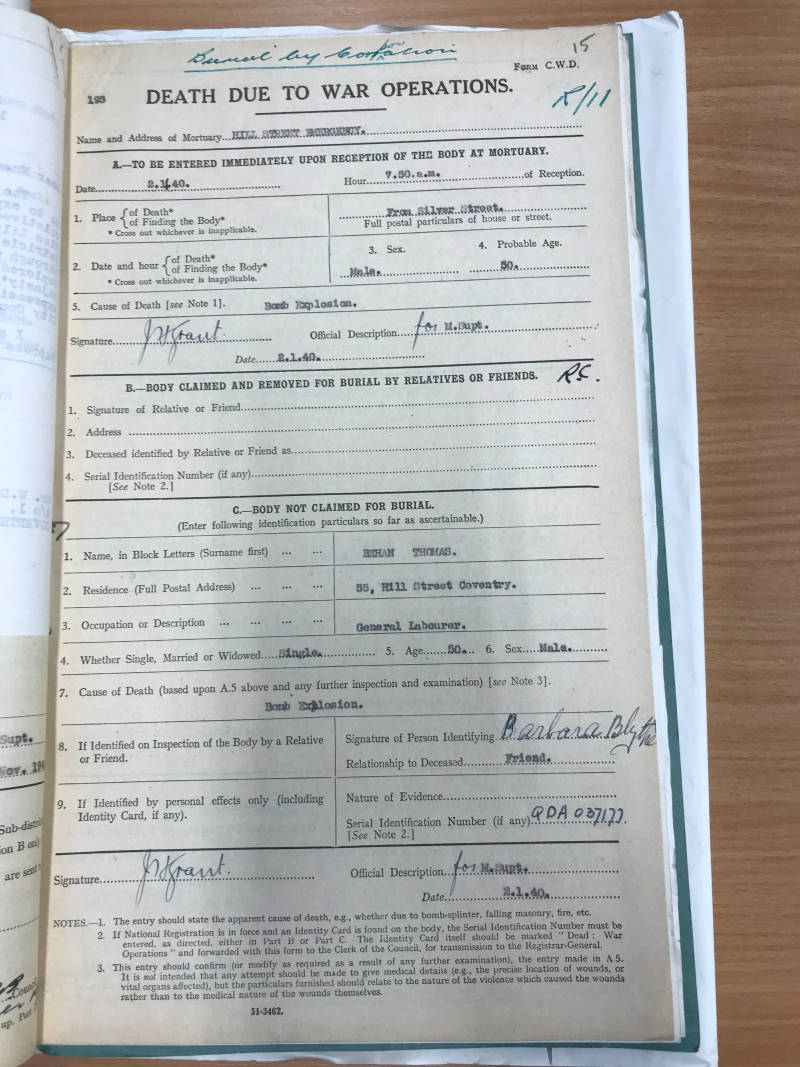 Burial by Corporation
15
FORM C.W.D.
193 DEATH DUE TO WAR OPERATIONS.
R/11
Name and Address of Mortuary HILL STREET EMERGENCY.
A.—TO BE ENTERED IMMEDIATELY UPON RECEPTION OF THE BODY AT MORTUARY.
Date 2.1.40. Hour 7.50.a.m. of Reception.
1. Place { of Death* of Finding the Body* From Silver Street.
* Cross out whichever is inapplicable. Full postal particulars of house or street.
2. Date and hour { of Death* of Finding the Body* 3. Sex. 4. Probable Age.
* Cross out whichever is inapplicable. Male. 50.
5. Cause of Death [see Note 1]. Bomb Explosion.
Signature J Grant. Official Description for M.Supt.
Date 2.1.40.
B.—BODY CLAIMED AND REMOVED FOR BURIAL BY RELATIVES OR FRIENDS. RC.
1. Signature of Relative or Friend
2. Address
3. Deceased identified by Relative or Friend as
4. Serial Identification Number (if any)
[See Note 2.]
C.—BODY NOT CLAIMED FOR BURIAL.
(Enter following identification particulars so far as ascertainable.)
1. Name, in Block Letters (Surname first) ... ... BEHAN THOMAS.
2. Residence (Full Postal Address) ... ... ... 55, Hill Street Coventry.
3. Occupation or Description ... ... ... ... General Labourer.
4. Whether Single, Married or Widowed Single. 5. Age 50. 6. Sex Male.
7. Cause of Death (based upon A.5 above and any further inspection and examination) [see Note 3].
Bomb Explosion.
8. If Identified on Inspection of the Body by a Relative or Friend.
Signature of Person Identifying Barbara Blythe
Relationship to Deceased Friend.
9. If Identified by personal effects only (including Identity Card, if any).
Nature of Evidence
Serial Identification Number (if any) QDA 037177.
[See Note 2.]
Signature J Grant. Official Description for M.Supt.
Date 2.1.40.
NOTES.—1. The entry should state the apparent cause of death, e.g., whether due to bomb-splinter, falling masonry, fire, etc.
2. If National Registration is in force and an Identity Card is found on the body, the Serial Identification Number must be
entered, as directed, either in Part B or Part C. The Identity Card itself should be marked "Dead: War
Operations" and forwarded with this form to the Clerk of the Council, for transmission to the Registrar-General.
3. This entry should confirm (or modify as required as a result of any further examination), the entry made in A 5.
It is not intended that any attempt should be made to give medical details (e.g., the precise location of wounds, or
vital organs affected), but the particulars furnished should relate to the nature of the violence which caused the wounds
rather than to the medical nature of the wounds themselves.
51-3462.
Supt.
Nov. 194
Sub-distri
ion B only
are sent
Council
up. Part